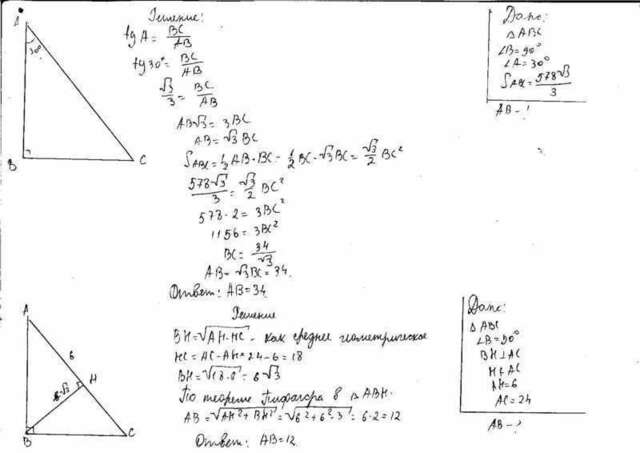 Решение:
tg A = BC/AB
tg 30° = BC/AB
√3/3 = BC/AB
AB√3 = 3BC
AB = √3 BC
S ABC = 1/2 AB · BC = 1/2 BC · √3 BC = √3/2 BC²
578√3/3 = √3/2 BC²
578 · 2 = 3BC²
1156 = 3BC²
BC = 34/√3
AB = √3 BC = 34.
Ответ: AB = 34.
Дано:
△ ABC
∠B = 90°
∠A = 30°
S ABC = 578√3/3
AB - ?
A
30°
B
C
Решение
BH = √AH·HC - как среднее геометрическое
HC = AC - AH = 24 - 6 = 18
BH = √18·6 = 6√3
По теореме Пифагора в △ ABH.
AB = √AH² + BH² = √6² + 6²·3 = 6·2 = 12
Ответ: AB = 12.
Дано:
△ ABC
∠B = 90°
BH ⊥ AC
H ∈ AC
AH = 6
AC = 24
AB - ?
A
6
H
6√3
B
C